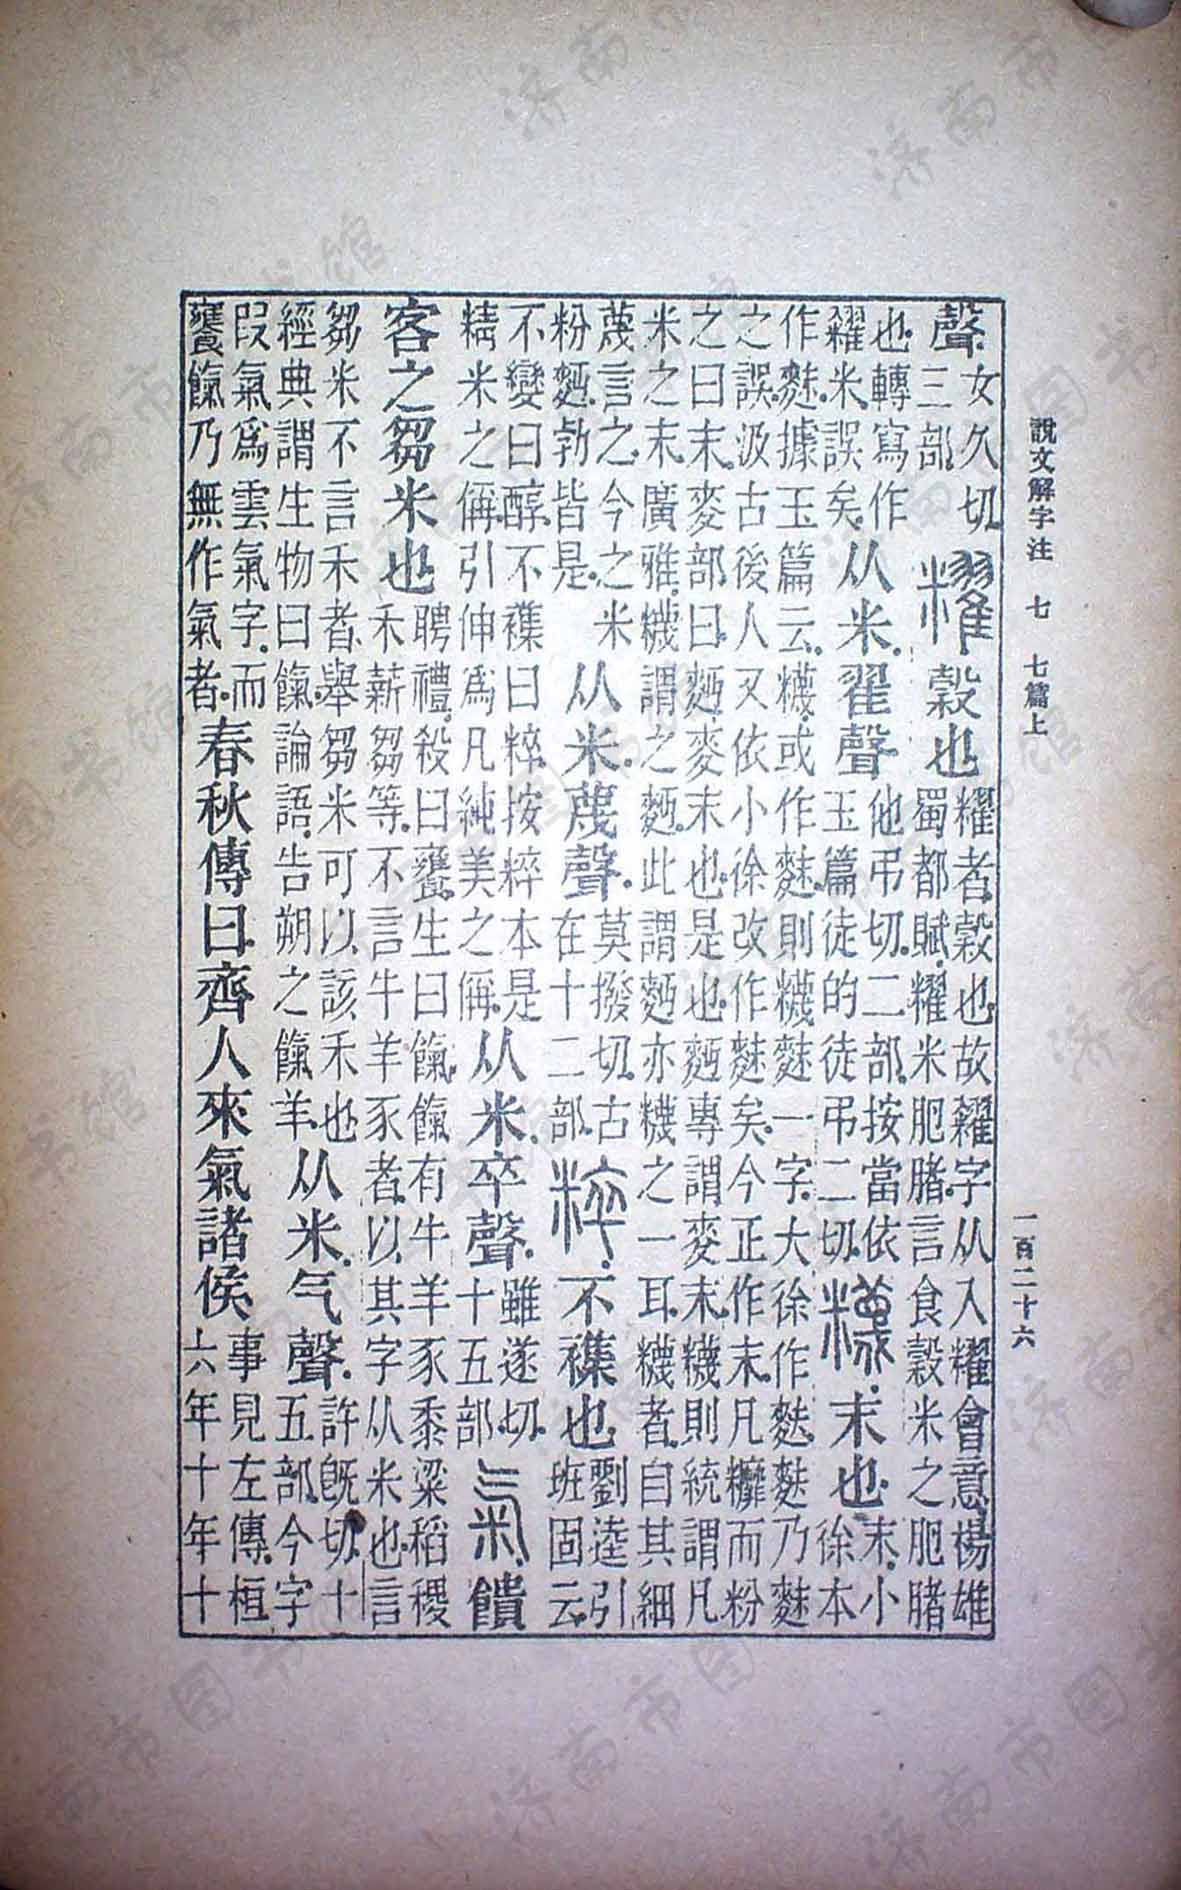 說文解字注 七 七篇上 一百二十六
聲。女久切。三部。䊮 穀也。䊮者、穀也。故糴字从入䊮會意。楊雄蜀都賦。䊮米肥䐗。言食穀米之肥䐗
也。轉寫作糶米。誤矣。从米。翟聲。他弔切。二部。按當依玉篇徒的徒弔二切。䊳 末也。末。小徐本
作䴲。據玉篇云。䊳或作䴲。則䊳䴲一字。大徐作䴲。䴲乃䴲之誤。汲古後人又依小徐改作䴲矣。今正作末。凡糠而粉
之曰末。麥部曰。麪、麥末也。是也。麪專謂麥末。䊳則統謂凡米之末。廣雅。䊳謂之麪。此謂麪亦䊳之一耳。䊳者。自其細
蔑言之。今之米粉麪勃皆是。从米。蔑聲。莫撥切。古在十二部。粹 不襍也。劉逵引班固云。
不變曰醇。不襍曰粹。按粹本是精米之稱。引伸爲凡純美之稱。从米。卒聲。雖遂切。十五部。氣 饋
客之芻米也。聘禮。殺曰饔。生曰餼。餼有牛羊豕黍粱稻稷禾薪芻等。不言牛羊豕者、以其字从米也。言
芻米不言禾者、舉芻米可以該禾也。經典謂生物曰餼。論語。告朔之餼羊。从米。气聲。許旣切。十五部。今字
叚氣爲雲氣字。而饔餼乃無作氣者。春秋傳曰。齊人來氣諸侯。事見左傳。桓六年十年十